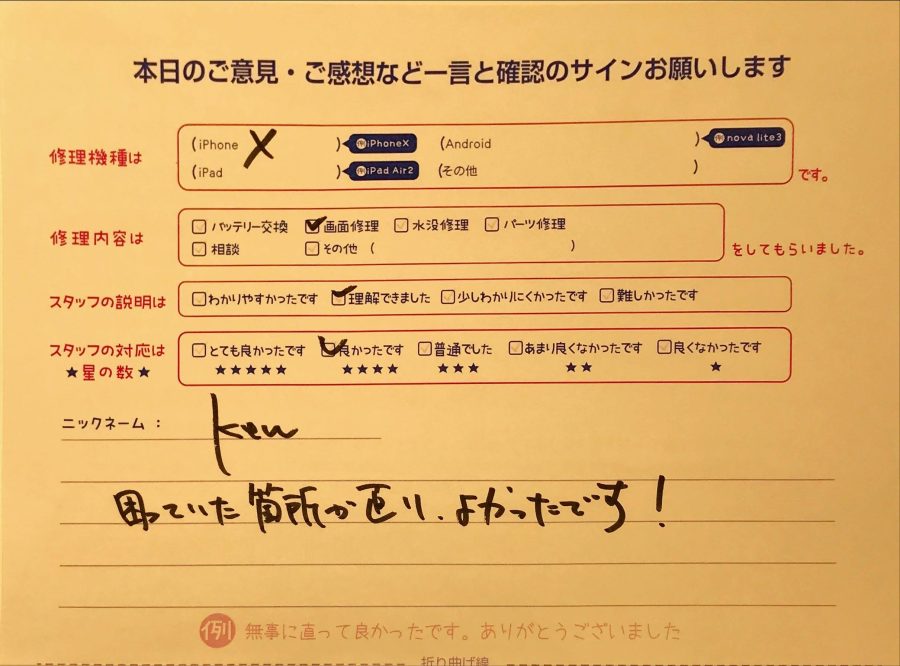 本日のご意見・ご感想など一言と確認のサインお願いします
修理機種は
(iPhone X ) 例iPhoneX (Android ) 例nova lite3
(iPad ) 例iPad Air2 (その他 )
です。
修理内容は
バッテリー交換 画面修理 水没修理 パーツ修理
相談 その他 ( )
をしてもらいました。
スタッフの説明は わかりやすかったです 理解できました 少しわかりにくかったです 難しかったです
スタッフの対応は とても良かったです 良かったです 普通でした あまり良くなかったです 良くなかったです
★星の数★ ★★★★★ ★★★★ ★★★ ★★ ★
ニックネーム: Ken
困っていた箇所が直り、よかったです!
例 無事に直って良かったです。ありがとうございました
折り曲げ線